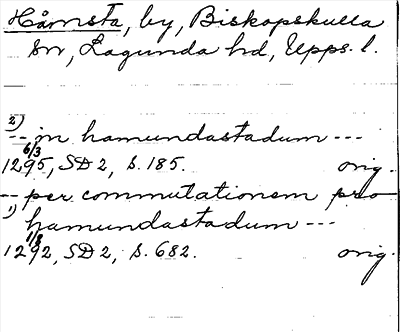 Håmsta, by, Biskopskulla
sn, Lagunda hd, Upps. l.
2)
-- in hamundastadum ---
6/3
1295, SD 2, s. 185. orig.
-- per commutationem pro
1) hamundastadum ---
1/8
1292, SD 2, s. 682. orig.